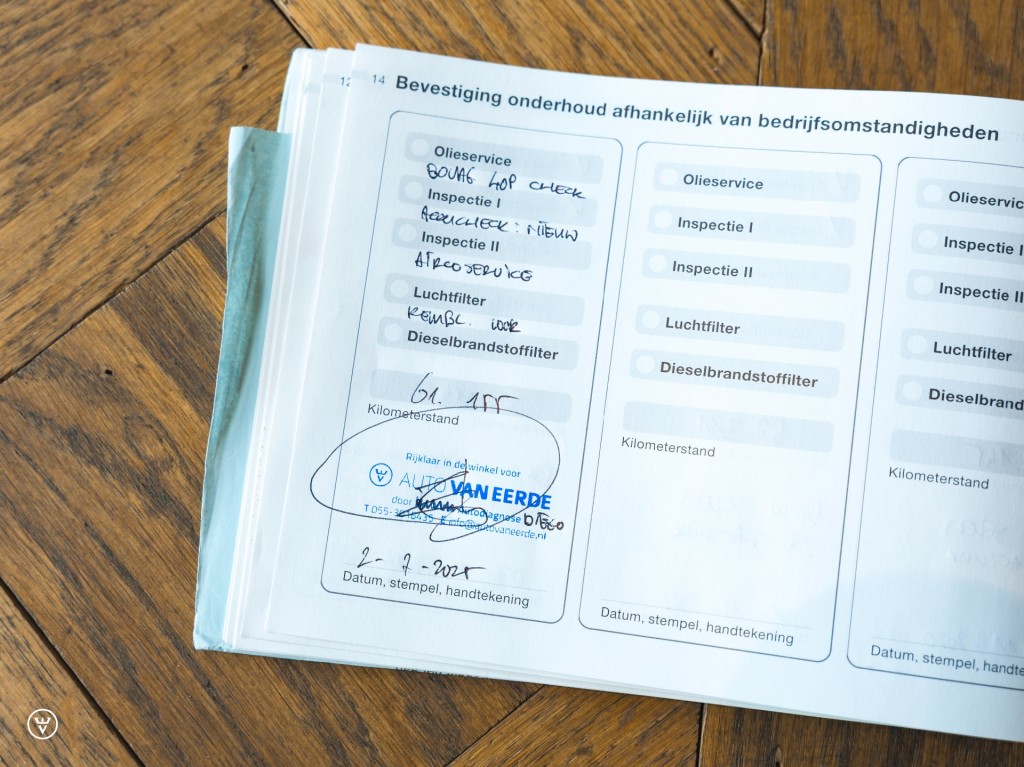 12
14 Bevestiging onderhoud afhankelijk van bedrijfsomstandigheden
Olieservice
BOVAG 40P CHECK
Inspectie I
ACCUCHECK: NIEUW
Inspectie II
AIRCOSERVICE
Luchtfilter
REMBL. VOOR
Dieselbrandstoffilter
61. 155
Kilometerstand
Rijklaar in de winkel voor
AUTO VAN EERDE
door Autodiagnose DIEGO
info@autovaneerde.nl
2-7-2025
Datum, stempel, handtekening
Olieservice
Inspectie I
Inspectie II
Luchtfilter
Dieselbrandstoffilter
Kilometerstand
Datum, stempel, handtekening
Olieservic
Inspectie I
Inspectie II
Luchtfilter
Dieselbrand
Kilometerstand
Datum, stempel, handte